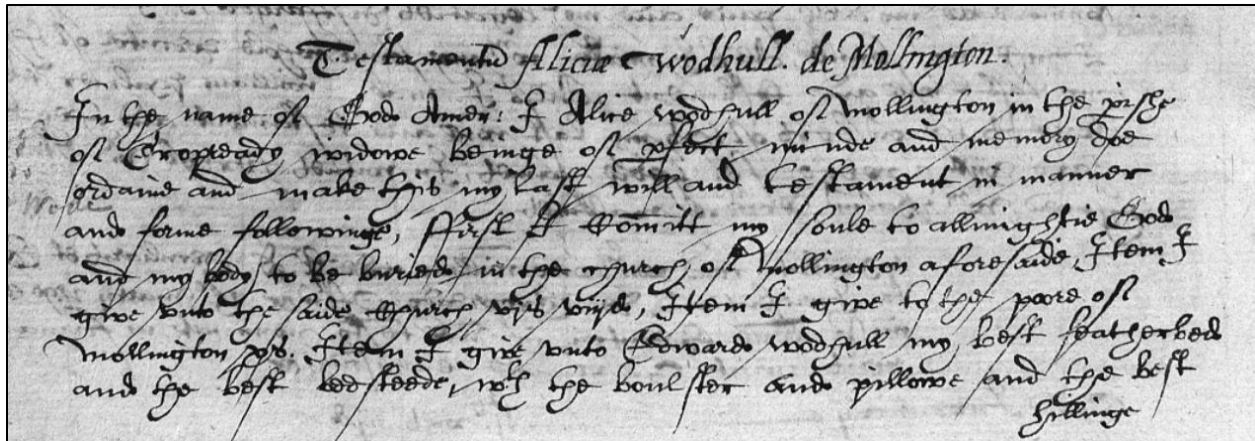 Testamentū Aliciæ Wodhull. de Mollington.
In the name of God Amen: I Alice wodhull of Mollington in the prshe
of Cropready widowe beinge of pfect minde and memory doe
ordaine and make this my last will and testament in manner
and forme followinge, ffirst I Com̄itt my soule to allmightie God
and my body to be buried in the church of Mollington aforesaide, Item I
give vnto the saide Church vjs viijd, Item I give to the poore of
Mollington xs. Item I give vnto Edward wodhull my best featherbed
and the best bedsteede, wth the boulster and pillowe and the best
hillinge